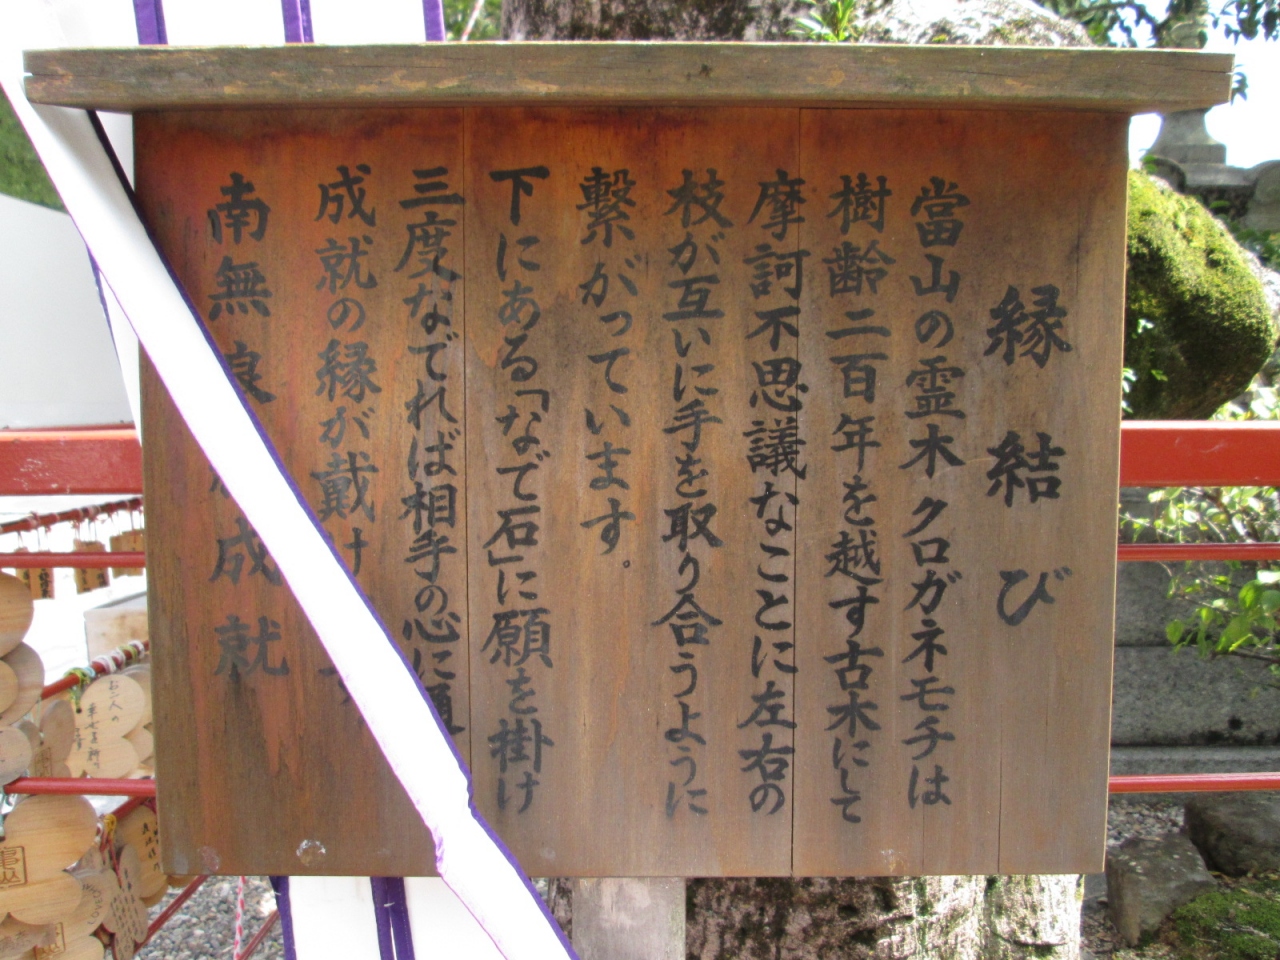 縁結び
當山の霊木クロガネモチは
樹齢二百年を越す古木にして
摩訶不思議なことに左右の
枝が互いに手を取り合うように
繋がっています。
下にある「なで石」に願を掛け
三度なでれば相手の心に通
成就の縁が戴けます
南無良縁成就
お二人の